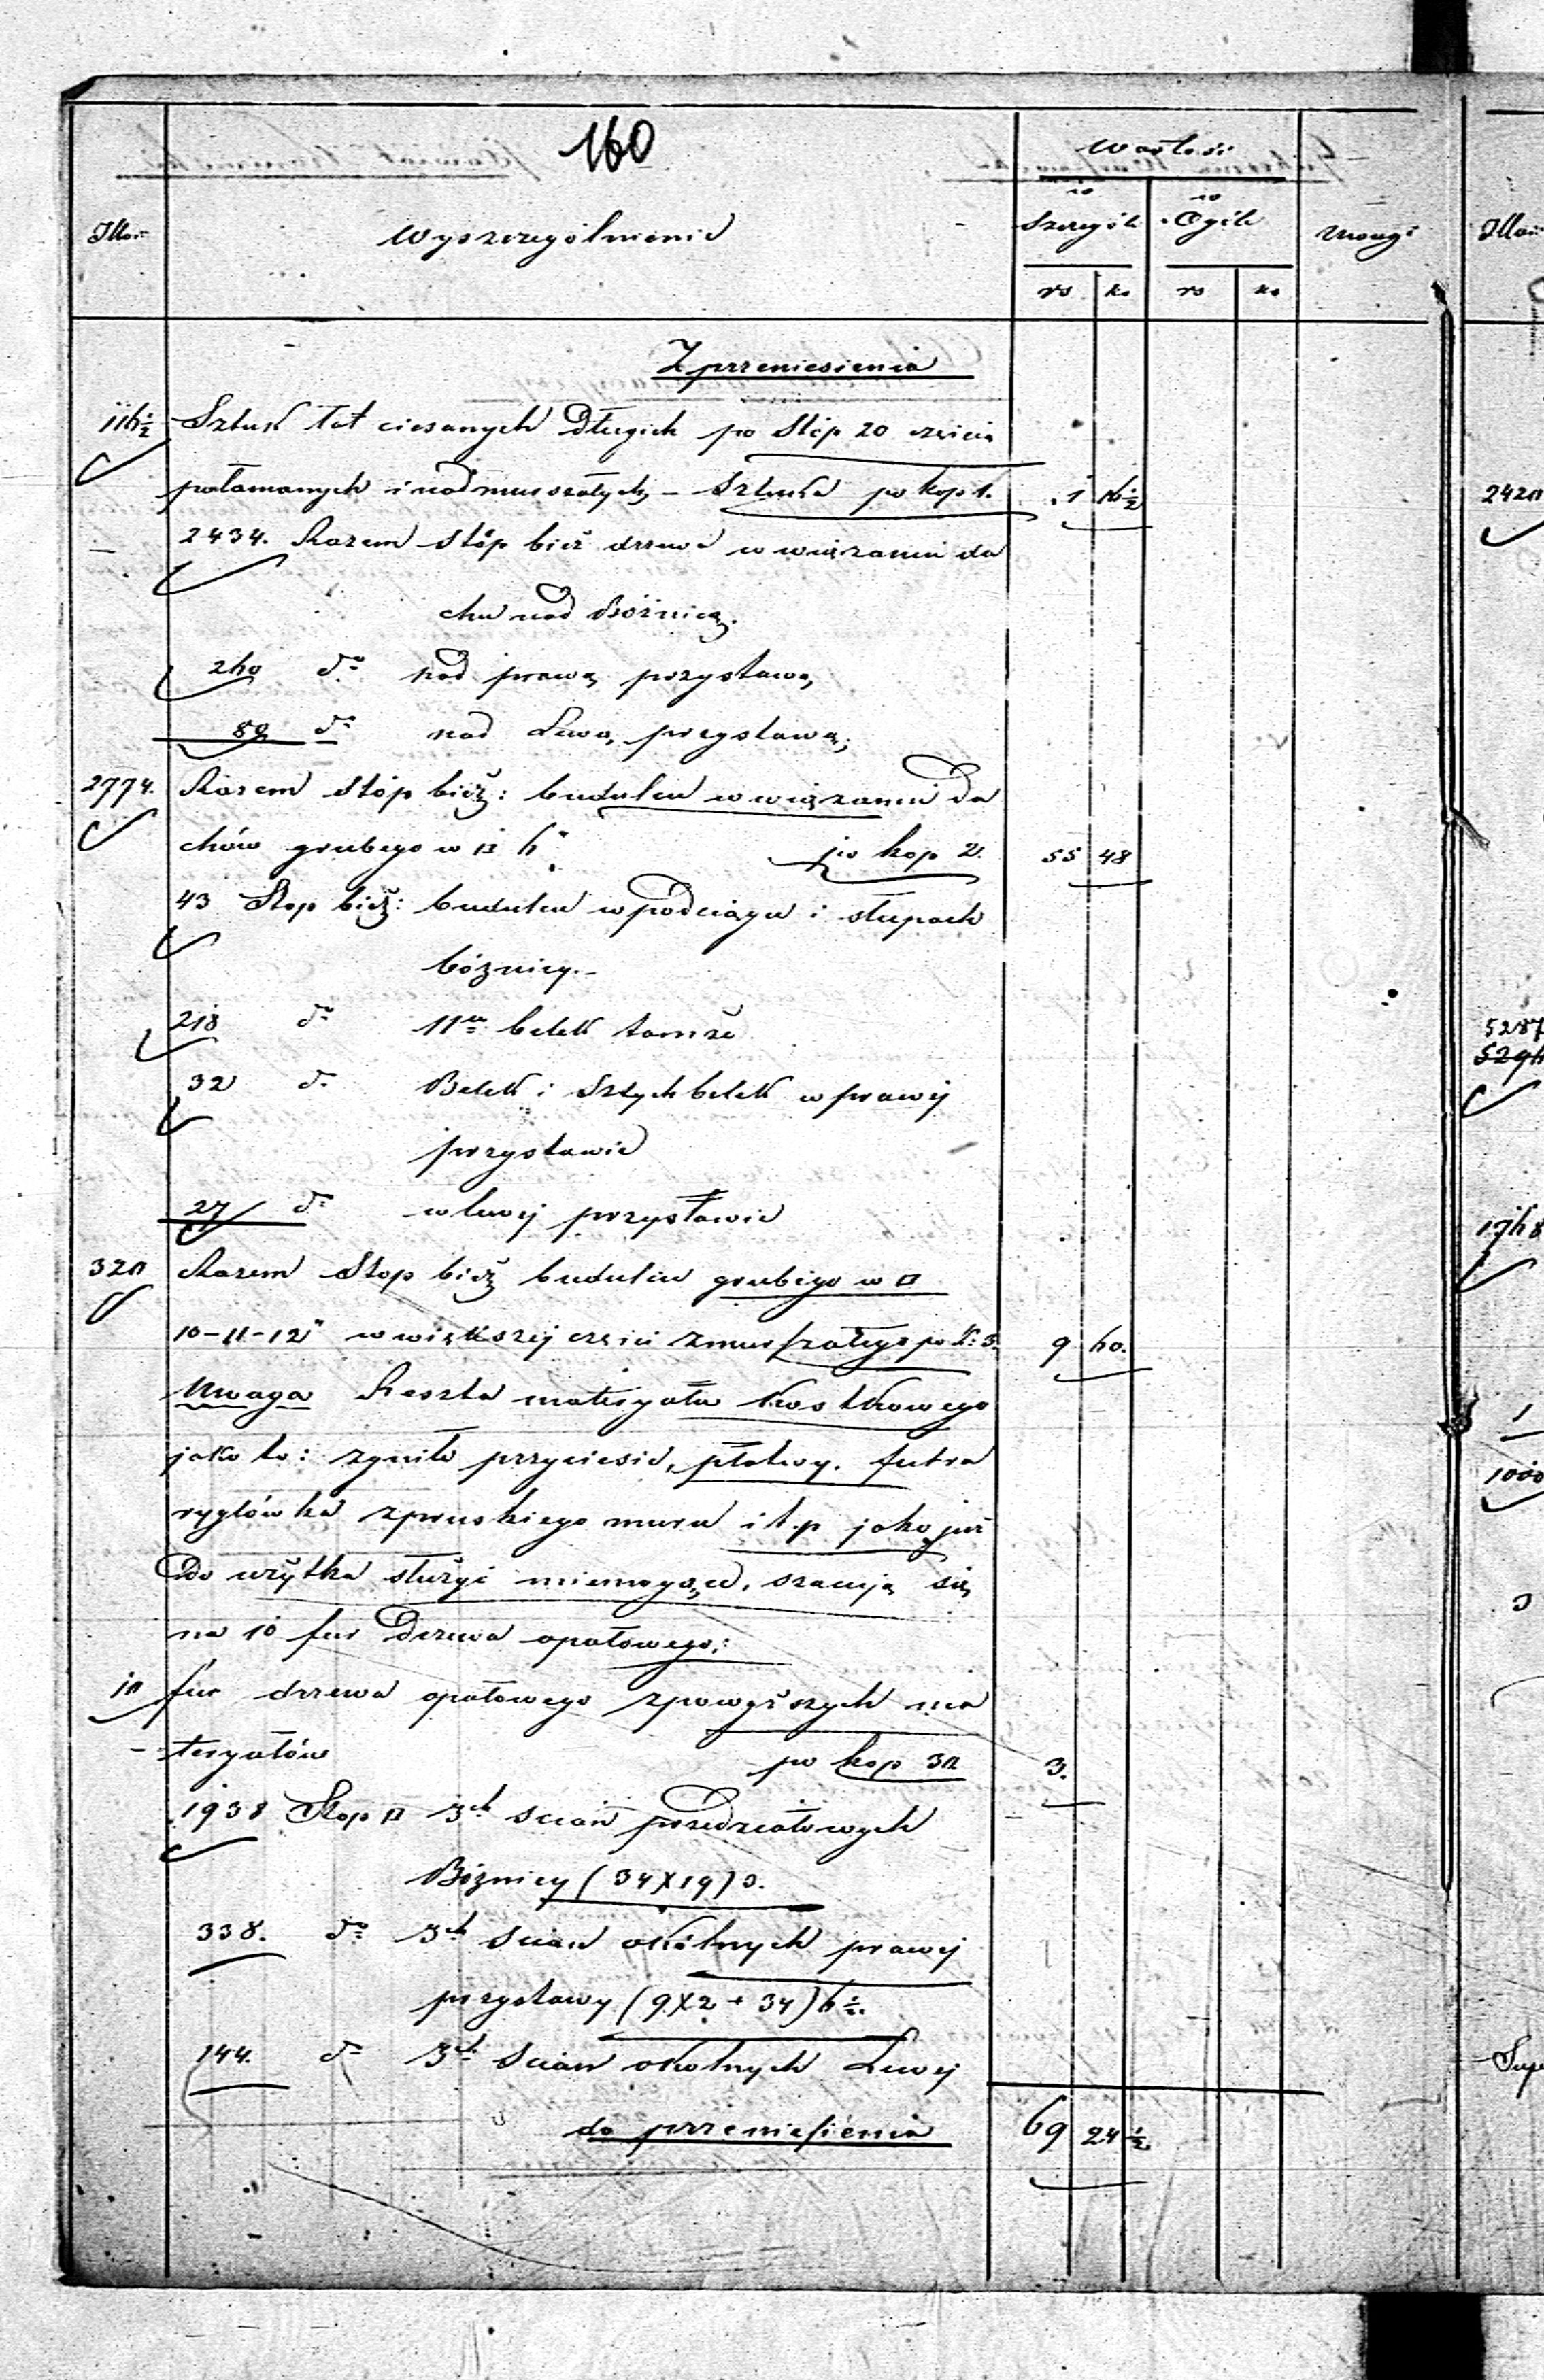 160
Wartość
w w
Ilość Wyszczególnienie Szczególe Ogóle Uwagi
rs ko rs ko
Z przeniesienia
116½ Sztuk łat ciosanych długich po stóp 20 części
połamanych i nadmurszałych – Sztuka po kop 1. 1 16½
2434. Razem stóp bież drzewa w wiązaniu da
chu nad Bóżnicą.
260 do nad prawą przystawą
80 do nad Lewą przystawą;
2774. Razem stóp bież: budulcu w wiązaniu da
chów grubego w □ 6" po kop 2. 55 48
43 Stop bież: budulcu w podciągu i słupach
bóżnicy.–
218 do 11tu belek tamże
32 do Belek i Sztychbelek w prawej
przystawie
27 do w lewej przystawie
320 Razem Stop bież budulcu grubego w □
10–11–12" w większej części zmurszałego po k: 3. 9 60.
Uwaga Reszta materyału kostkowego
jako to: zgniłe przyciesie, płatwy. futra
ryglówka z pruskiego muru i t.p jako już
do użytku służyć niemogące, szacuje się
na 10 fur drzewa opałowego:
10 fur drzewa opałowego z powyższych ma
teryałów po kop 30 3.
1938 Stop □ 3ch ścian przedziałowych
Bóżnicy (34X19)3.
338. do 3ch ścian okólnych prawej
przystawy (9X2 + 34)6½.
144. do 3ch ścian okolnych Lewej
do przeniesienia 69 24½
Ilość
2420
5287
5296
1768
1
1000